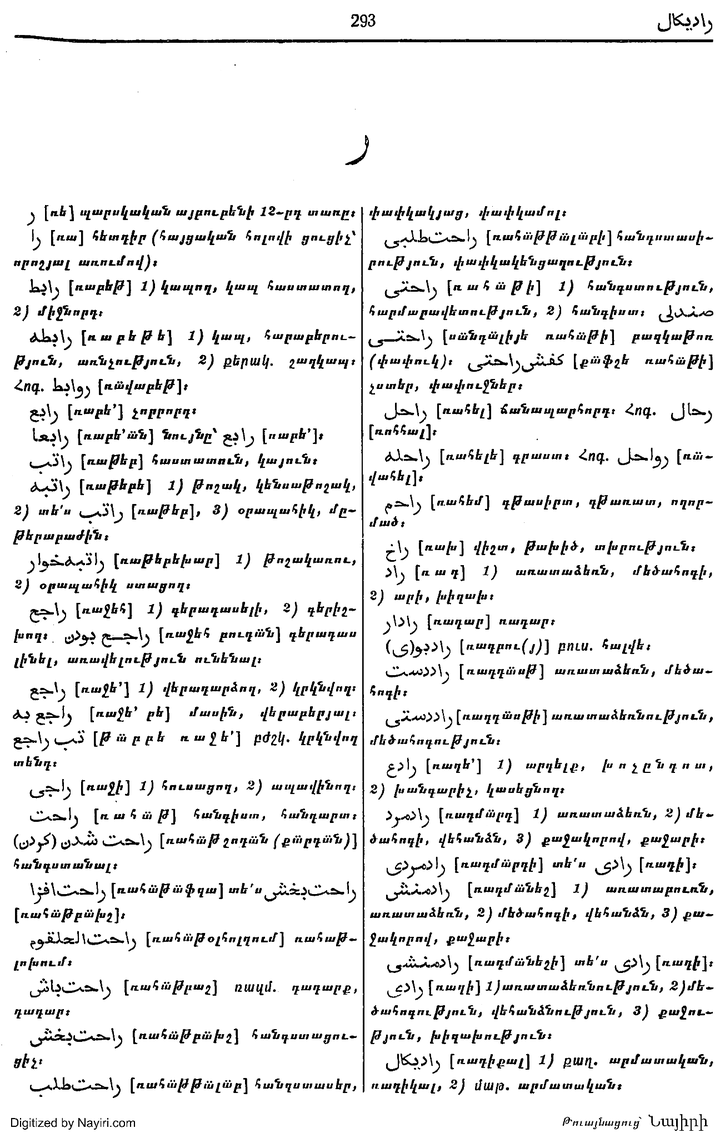 293
رادیکال
ر
ر [ռե] պարսկական այբուբենի 12–րդ տառը։
را [ռա] հետդիր (հայցական հոլովի ցուցիչ՝
որոշյալ առումով)։
رابط [ռաբեթ] 1) կապող, կապ հաստատող,
2) միջնորդ։
رابطه [ռաբեթե] 1) կապ, հարաբերու–
թյուն, առնչություն, 2) քերակ. շաղկապ։
Հոգ. روابط [ռավաբեթ]։
رابع [ռաբե՛] չորրորդ։
رابعا [ռաբե՛ան] նույնը՝ رابع [ռաբե՛]։
راتب [ռաթեբ] հաստատուն, կայուն։
راتبه [ռաթեբե] 1) թոշակ, կենսաթոշակ,
2) տե՛ս راتب [ռաթեբ], 3) օրապահիկ, մը–
թերաբաժին։
راتبه‌خوار [ռաթեբեխար] 1) թոշակառու,
2) օրապահիկ ստացող։
راجح [ռաջեհ] 1) գերադասելի, 2) գերիշ–
խող։ راجح بودن [ռաջեհ բուդան] գերադաս
լինել, առավելություն ունենալ։
راجع [ռաջե՛] 1) վերադարձող, 2) կրկնվող։
راجع به [ռաջե՛ բե] մասին, վերաբերյալ։
تب راجع [թաբբե ռաջե՛] բժշկ. կրկնվող
տենդ։
راجی [ռաջի] 1) հուսացող, 2) ապավինող։
راحت [ռահաթ] հանգիստ, հանդարտ։
راحت شدن (کردن) [ռահաթ շոդան (քարդան)]
հանգստանալ։
راحت‌افزا [ռահաթաֆզա] տե՛ս راحت‌بخش
[ռահաթբախշ]։
راحت‌الحلقوم [ռահաթօլհոլղում] ռահաթ–
լոխում։
راحت‌باش [ռահաթբաշ] ռազմ. դադարք,
դադար։
راحت‌بخش [ռահաթբախշ] հանգստացու–
ցիչ։
راحت‌طلب [ռահաթթալաբ] հանգստասեր,
փափկակյաց, փափկամոլ։
راحت‌طلبی [ռահաթթալաբի] հանգստասի–
րություն, փափկակենցաղություն։
راحتی [ռահաթի] 1) հանգստություն,
հարմարավետություն, 2) հանգիստ։ صندلی
راحتی [սանդալիյե ռահաթի] բազկաթոռ
(փափուկ)։ کفش راحتی [քաֆշե ռահաթի]
չստեր, փափուչներ։
راحل [ռահել] ճանապարհորդ։ Հոգ. رحال
[ռոհհալ]։
راحله [ռահելե] գրաստ։ Հոգ. رواحل [ռա–
վահել]։
راحم [ռահեմ] գթասիրտ, գթառատ, ողոր–
մած։
راخ [ռախ] վիշտ, թախիծ, տխրություն։
راد [ռադ] 1) առատաձեռն, մեծահոգի,
2) արի, խիզախ։
رادار [ռադար] ռադար։
رادبو(ی) [ռադբու(յ)] բուս. հալվե։
راددست [ռադդասթ] առատաձեռն, մեծա–
հոգի։
راددستی [ռադդասթի] առատաձեռնություն,
մեծահոգություն։
رادع [ռադե՛] 1) արգելք, խոչընդոտ,
2) խանգարիչ, կասեցնող։
رادمرد [ռադմարդ] 1) առատաձեռն, 2) մե–
ծահոգի, վեհանձն, 3) քաջակորով, քաջարի։
رادمردی [ռադմարդի] տե՛ս رادی [ռադի]։
رادمنش [ռադմանեշ] 1) առատաբուռն,
առատաձեռն, 2) մեծահոգի, վեհանձն, 3) քա–
ջակորով, քաջարի։
رادمنشی [ռադմանեշի] տե՛ս رادی [ռադի]։
رادی [ռադի] 1) առատաձեռնություն, 2) մե–
ծահոգություն, վեհանձնություն, 3) քաջու–
թյուն, խիզախություն։
رادیکال [ռադիքալ] 1) քաղ. արմատական,
ռադիկալ, 2) մաթ. արմատական։
Digitized by Nayiri.com
Թուայնացուց՝ Նայիրի